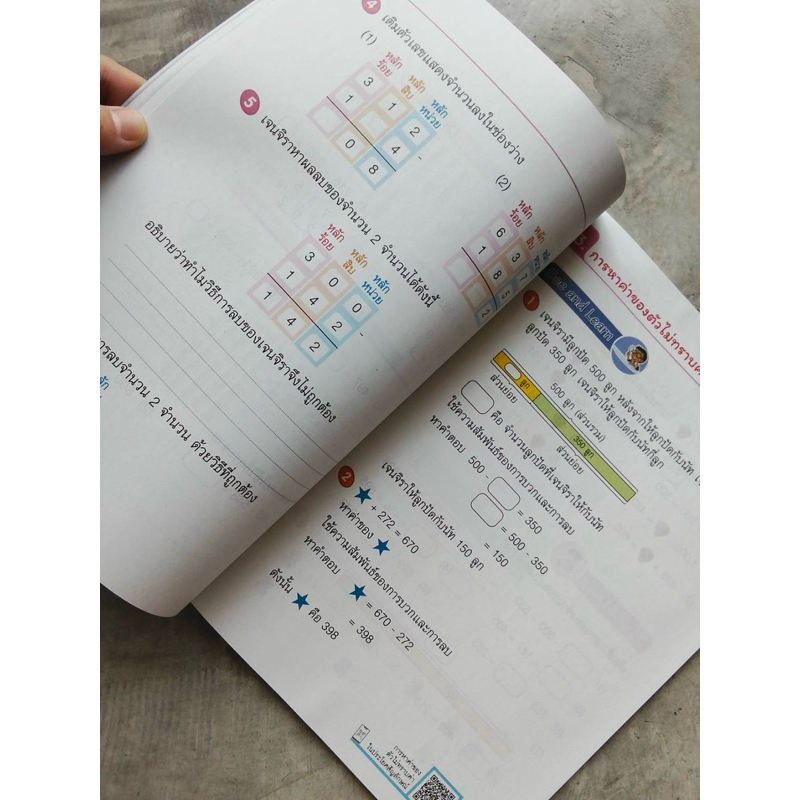 4 เติมตัวเลขแสดงจำนวนลงในช่องว่าง
(1)
หลักร้อย หลักสิบ หลักหน่วย
3 1 2
1 4 -
0 8
(2)
หลักร้อย หลักสิบ
6 3 1
1 8 5
2
5 เจนจิราหาผลลบของจำนวน 2 จำนวนได้ดังนี้
หลักร้อย หลักสิบ หลักหน่วย
3 0 0
1 4 2 -
1 4 2
อธิบายว่าทำไมวิธีการลบของเจนจิราจึงไม่ถูกต้อง
การลบจำนวน 2 จำนวน ด้วยวิธีที่ถูกต้อง
3. การหาค่าของตัวไม่ทราบค่า
and Learn
1 เจนจิรามีลูกปัด 500 ลูก หลังจากให้ลูกปัดกับนัท
ลูกปัด 350 ลูก เจนจิราให้ลูกปัดกับนัทกี่ลูก
500 ลูก (ส่วนรวม)
ลูก
350 ลูก
ส่วนย่อย
ส่วนย่อย
คือ จำนวนลูกปัดที่เจนจิราให้กับนัท
ใช้ความสัมพันธ์ของการบวกและการลบ
หาคำตอบ 500 - = 350
= 500 - 350
= 150
เจนจิราให้ลูกปัดกับนัท 150 ลูก
2 ★ + 272 = 670
หาค่าของ ★
ใช้ความสัมพันธ์ของการบวกและการลบ
หาคำตอบ ★ = 670 - 272
= 398
ดังนั้น ★ คือ 398
การหาค่าของ
ตัวไม่ทราบค่า
ในประโยคสัญลักษณ์